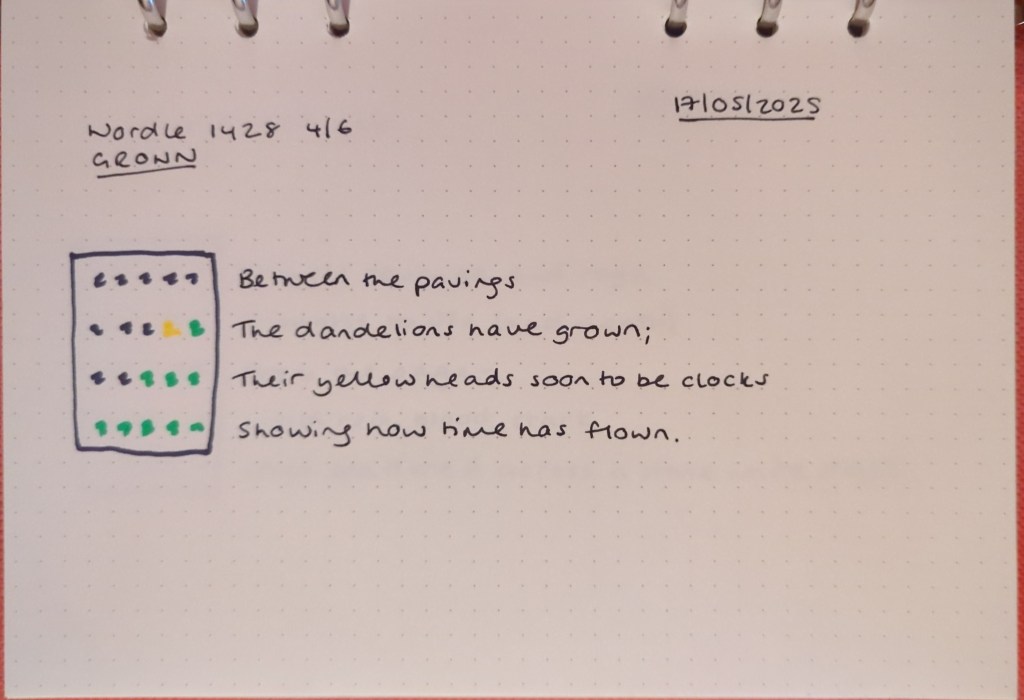 17/05/2025
Wordle 1428 4/6
GROWN
Between the pavings
The dandelions have grown;
Their yellow heads soon to be clocks
Showing how time has flown.